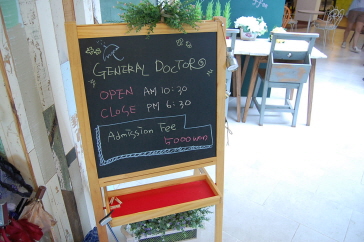 GENERAL DOCTORS
OPEN AM 10:30
CLOSE PM 6:30
Admission Fee
5000won